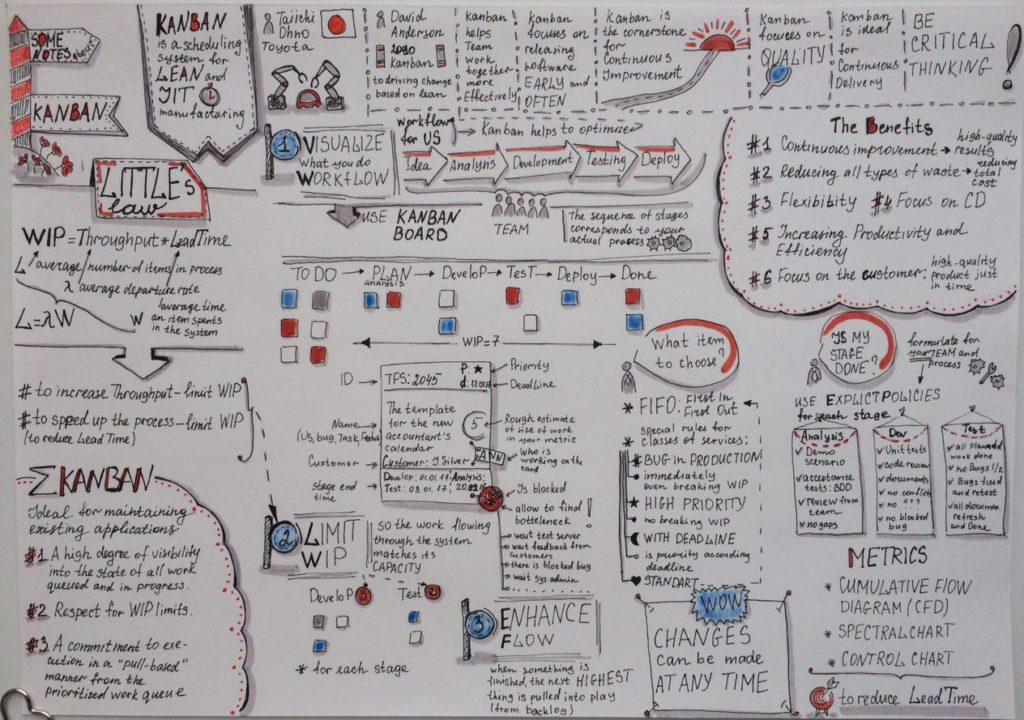 SOME
NOTES about
KANBAN
KANBAN
is a scheduling
system for
LEAN and
JIT
manufacturing
Taiichi
Ohno
Toyota
David
Anderson
kanban
to driving change
based on lean
Kanban
helps
Team
work
together
more
Effectively
Kanban
focuses on
releasing
software
EARLY and
OFTEN
Kanban is
the cornerstone
for
Continuous
Improvement
Kanban
focuses on
QUALITY
Kanban
is ideal
for
Continuous
Delivery
BE
CRITICAL
THINKING !
LITTLE's
law
WIP = Throughput * Lead Time
average number of items in process
λ average departure rate
average time
an item spents
in the system
W
L = λW
# to increase Throughput - limit WIP
# to speed up the process - limit WIP
(to reduce Lead Time)
Σ KANBAN
Ideal for maintaining
existing applications
#1 A high degree of visibility
into the state of all work
queued and in progress.
#2 Respect for WIP limits.
#3 A commitment to exe-
cution in a "pull-based"
manner from the
prioritized work queue
1 VISUALIZE
what you do
WORKFLOW
workflow
for US
Kanban helps to optimize
Idea
Analysis
Development
Testing
Deploy
USE KANBAN
BOARD
TEAM
The sequence of stages
corresponds to your
actual process
TO DO → PLAN → DeveloP → TesT → Deploy → Done
Analysis
WIP=7
ID
TFS: 2045
P: ★
Priority
Deadline
The template
for the new
accountant's
calendar
5
Rough estimate
of size of work
in your metric
Name
(US, bug, Task, Feature)
Customer
Customer: J.Silver
ANN
who is
working on the
card
Stage end
time
Develop: 01.01.17; Analysis:
Test: 03.01.17;
Is blocked
allow to find
bottleneck !
wait test server
wait feedback from
customers
there is blocked bug
wait sys admin
2 LIMIT
WIP
so the work flowing
through the system
matches its
CAPACITY
DeveloP 3
Test 2
* for each stage
3 ENHANCE
FLOW
when something is
finished, the next HIGHEST
thing is pulled into play
(from backlog)
The Benefits
#1 Continuous improvement → high-quality
results
#2 Reducing all types of waste → reducing
total
cost
#3 Flexibility #4 Focus on CD
#5 Increasing Productivity and
Efficiency
#6 Focus on the customer: high-quality
product just
in time
What item
to choose?
* FIFO: First In
First Out
special rules for
classes of services:
BUG in PRODUCTION
immediately
even breaking WIP
★ HIGH PRIORITY
no breaking WIP
WITH DEADLINE
is priority according
deadline
STANDART
WOW
CHANGES
can be made
AT ANY TIME
IS MY
STAGE
DONE?
formulate for
your TEAM and
process
USE EXPLICT POLICIES
for each stage
Analysis
✓ Demo
scenario
✓ acceptance
tests: BDD
✓ review from
team
✓ no gaps
Dev
✓ Unit tests
✓ code review
✓ documents
✓ no conflicts
✓ no ???
✓ no blocked
bug
Test
✓ all planned
work done
✓ no Bugs 1/2
✓ Bugs fixed
and retest
✓ all document
refresh
and Done
METRICS
* CUMULATIVE FLOW
DIAGRAM (CFD)
* SPECTRAL CHART
* CONTROL CHART
to reduce Lead Time